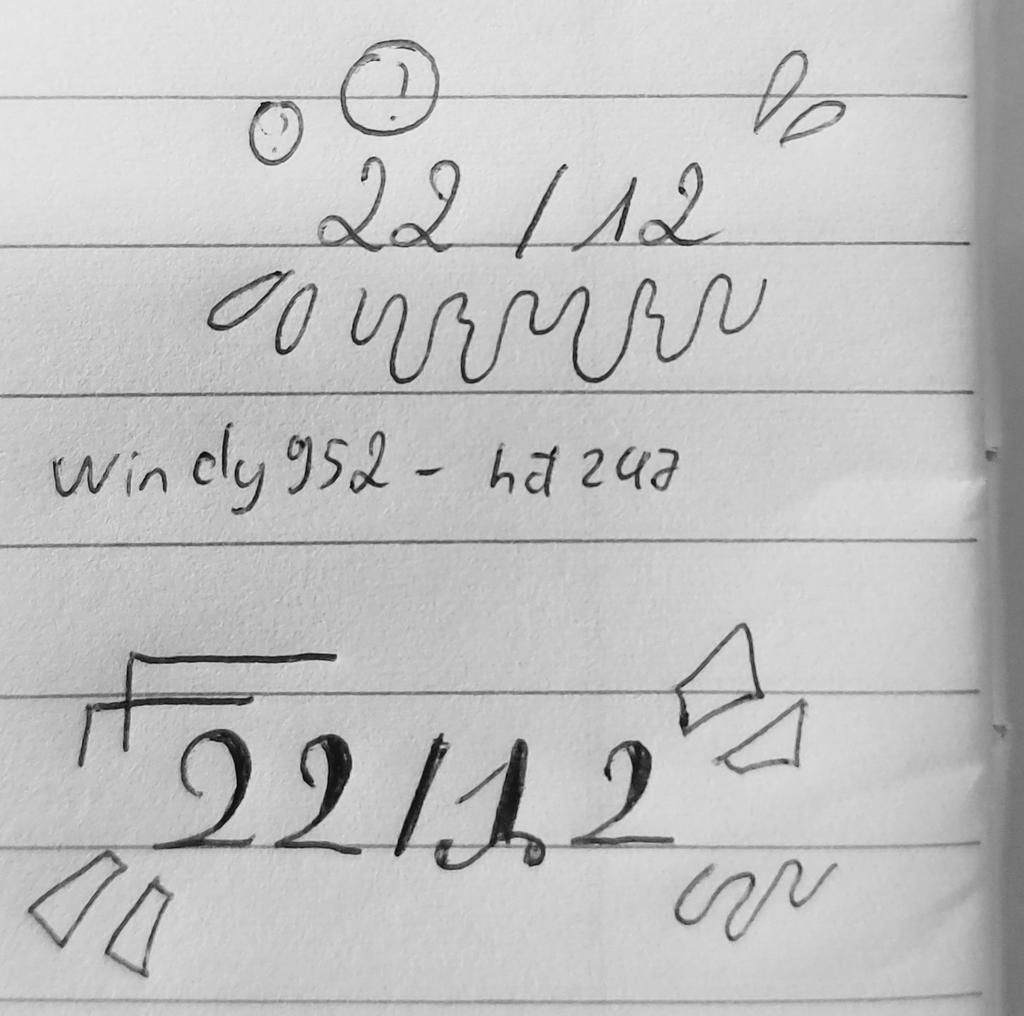 22/12
windy952 - hz247
22/12